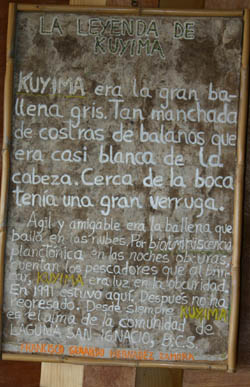 LA LEYENDA DE
KUYIMA
KUYIMA era la gran ba-
llena gris. Tan manchada
de costras de balanos que
era casi blanca de la
cabeza. Cerca de la boca
tenía una gran verruga.
Agil y amigable era la ballena que
baila en las nubes. Por bioluminiscencia
planctónica en las noches obscuras,
cuentan los pescadores que al brin-
car, KUYIMA era luz en la obscuridad.
En 1981 estuvo aquí. Después no ha
regresado. Desde siempre KUYIMA
es el alma de la comunidad de
LAGUNA SAN IGNACIO, B.C.S.
FRANCISCO GUZMÁN